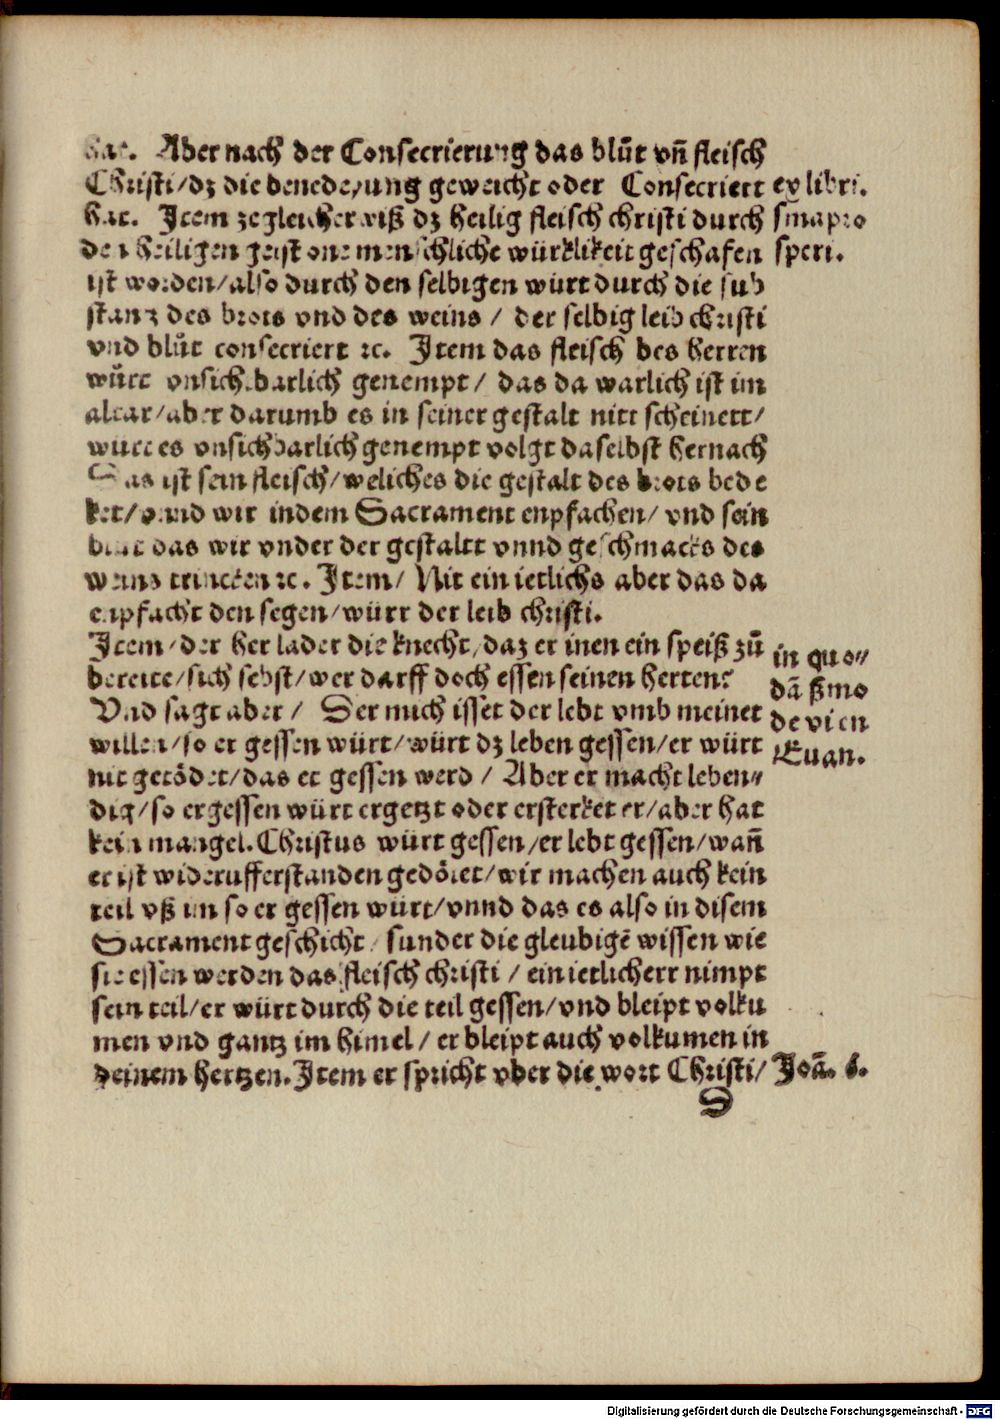 hat. Aber nach der Consecrierung das blůt vñ fleisch
Christi/dz die benedeyung geweicht oder Consecriert
hat. Item zegleicherwiß dz heilig fleisch christi durch
den heiligen geist one menschliche würklikeit geschafen
ist worden/also durch den selbigen würt durch die sub
stantz des brots vnd des weins / der selbig leib christi
vnd blůt consecriert ꝛc. Item das fleisch des herren
würt vnsichtbarlich genempt/ das da warlich ist im
altar/aber darumb es in seiner gestalt nitt scheinett/
würt es vnsichbarlich genempt volgt daselbst hernach
Das ist sein fleisch/weliches die gestalt des brots bede
ket/vnnd wir indem Sacrament enpfachen/ vnd sein
blůt das wir vnder der gestaltt vnnd geschmacks des
weins trincken ꝛc. Item/ Nit ein ietlichs aber das da
enpfacht den segen/würt der leib christi.
Item/der her lader die knecht/daz er inen ein speiß zů
bereite/sich sebst/wer darff doch essen seinen herren?
Vnd sagt aber / Der mich isset der lebt vmb meinet
willen/so er gessen würt/würt dz leben gessen/er würt
nit getödet/das er gessen werd / Aber er macht leben⸗
dig/so er gessen würt ergetzt oder ersterket er/aber hat
kein mangel. Christus würt gessen/er lebt gessen/wañ
er ist widerufferstanden gedötet/wir machen auch kein
teil vß im so er gessen würt/vnnd das es also in disem
Sacrament geschicht/ sunder die gleubigē wissen wie
sie essen werden das fleisch christi / ein ietlicherr nimpt
sein teil/er würt durch die teil gessen/vnd bleipt volku
men vnd gantz im himel/ er bleipt auch volkumen in
deinem hertzen. Item er spricht vber die wort Christi/
D
ex libri.
smapro
speri.
in quo⸗
dā ßmo
de vi en
Euan.
Joā. 6.